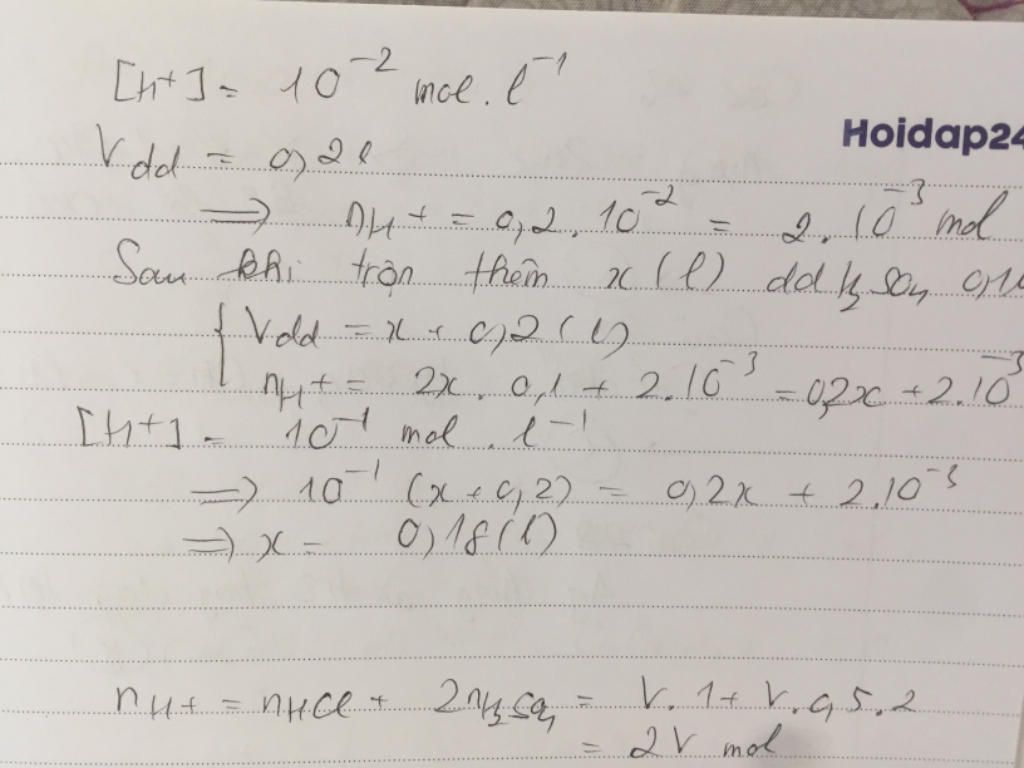 [H+] = 10⁻² mol . l⁻¹
Hoidap24
Vdd = 0,2l
=> nH+ = 0,2 . 10⁻² = 2 . 10⁻³ mol
Sau khi trộn thêm x (l) dd H₂SO₄ 0,1
{ Vdd = x + 0,2 (l)
nH+ = 2x . 0,1 + 2.10⁻³ = 0,2x + 2.10⁻³
[H+] = 10⁻¹ mol . l⁻¹
=> 10⁻¹ (x + 0,2) = 0,2x + 2.10⁻³
=> x = 0,18 (l)
nH+ = nHCl + 2nH₂SO₄ = V.1 + V.0,5.2
= 2V mol